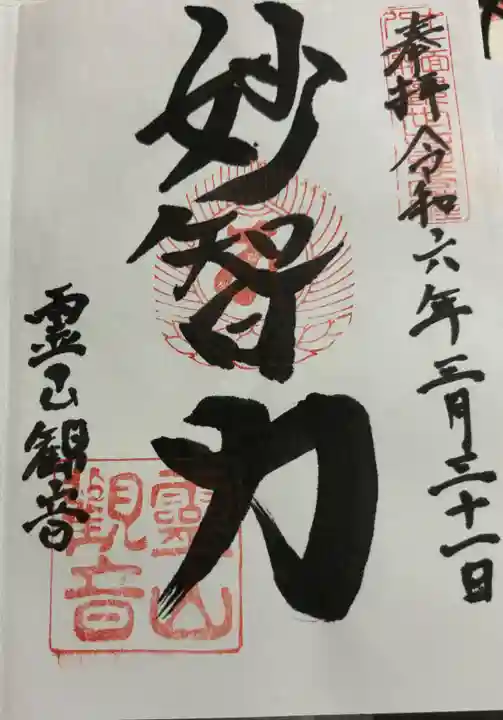 奉拝令和六年三月三十一日
妙智力
霊山観音
靈山
觀音